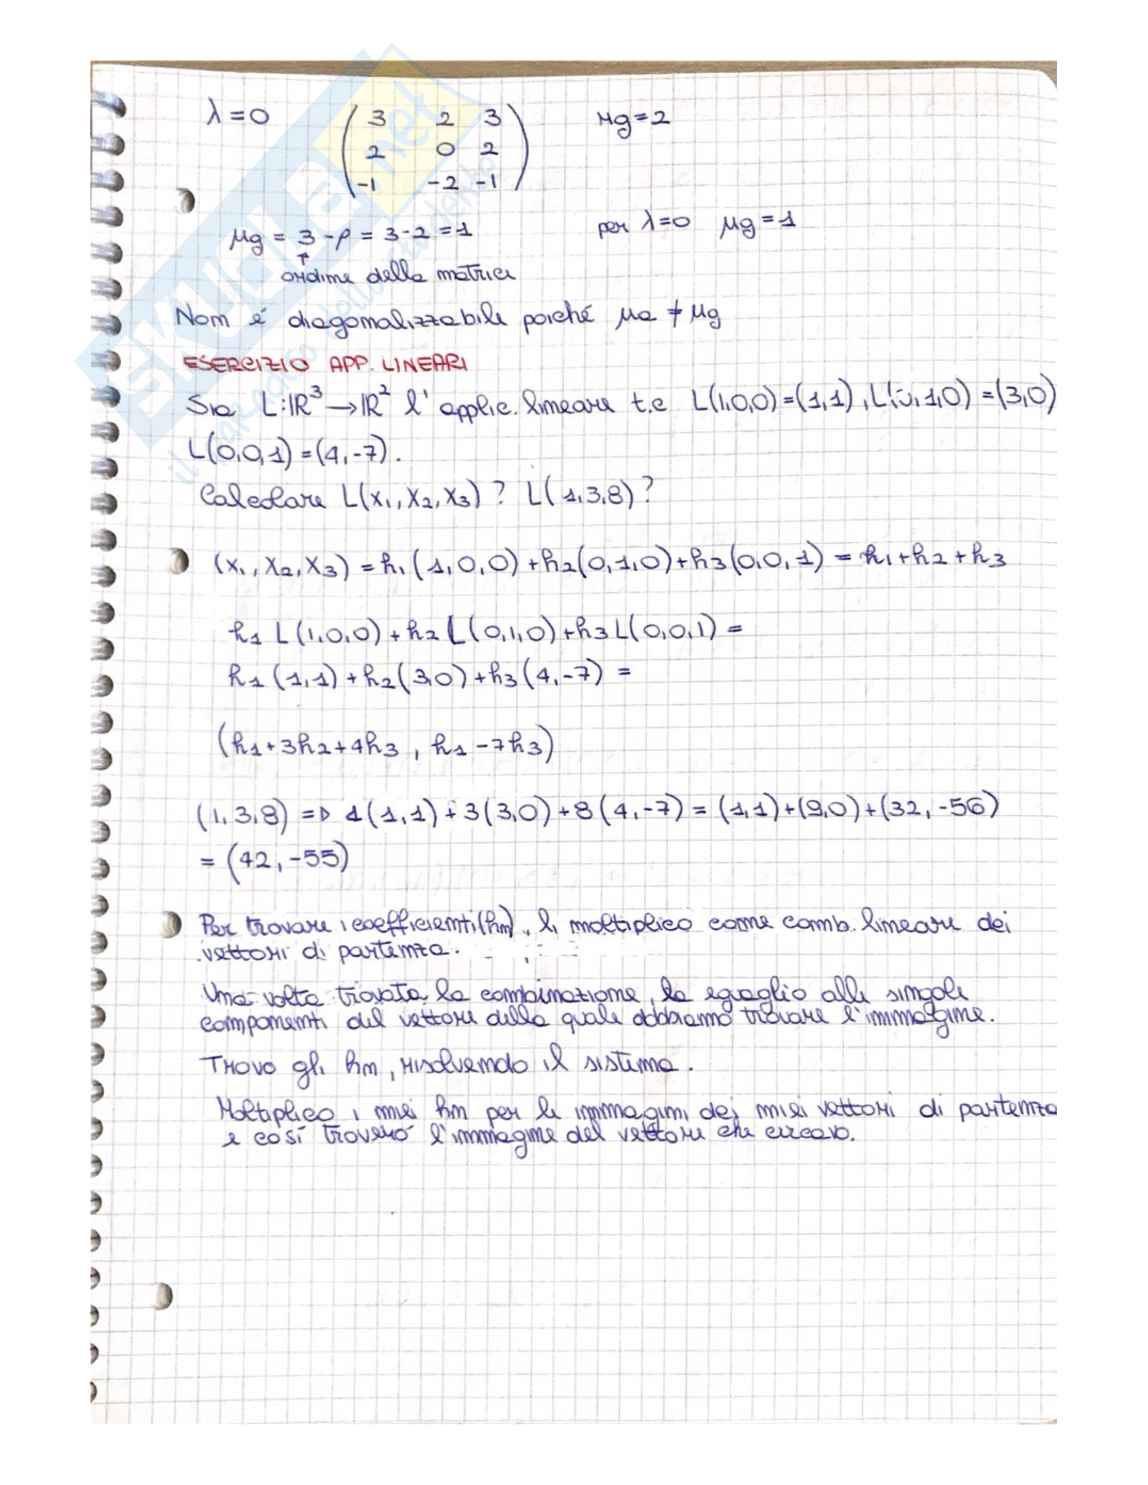 λ=0 ( 3 2 3 ) rg=2
2 0 2
-1 -2 -1
μg = 3-ρ = 3-2=1 per λ=0 μg=1
↑
ordine della matrice
Non é diagonalizzabile poiché μa ≠ μg
ESERCIZIO APP. LINEARI
Sia L:ℝ³→ℝ² l'applic. lineare t.c L(1,0,0)=(1,1), L(0,1,0)=(3,0)
L(0,0,1)=(4,-7).
Calcolare L(x₁,x₂,x₃)? L(1,3,8)?
(x₁,x₂,x₃)=h₁(1,0,0)+h₂(0,1,0)+h₃(0,0,1)= h₁+h₂+h₃
h₁ L(1,0,0)+h₂ L(0,1,0)+h₃L(0,0,1)=
h₁(1,1)+h₂(3,0)+h₃(4,-7)=
(h₁+3h₂+4h₃, h₁-7h₃)
(1,3,8) => 1(1,1)+3(3,0)+8(4,-7)=(1,1)+(9,0)+(32,-56)
=(42,-55)
Per trovare i coefficienti(hm), li moltiplico come comb. lineare dei
vettori di partenza.
Una volta trovata la combinazione, la eguaglio alle singole
componenti del vettore della quale dobbiamo trovare l'immagine.
Trovo gli hm, risolvendo il sistema.
Moltiplico i miei hm per le immagini dei miei vettori di partenza
e così troverò l'immagine del vettore che cercavo.
skuola.net